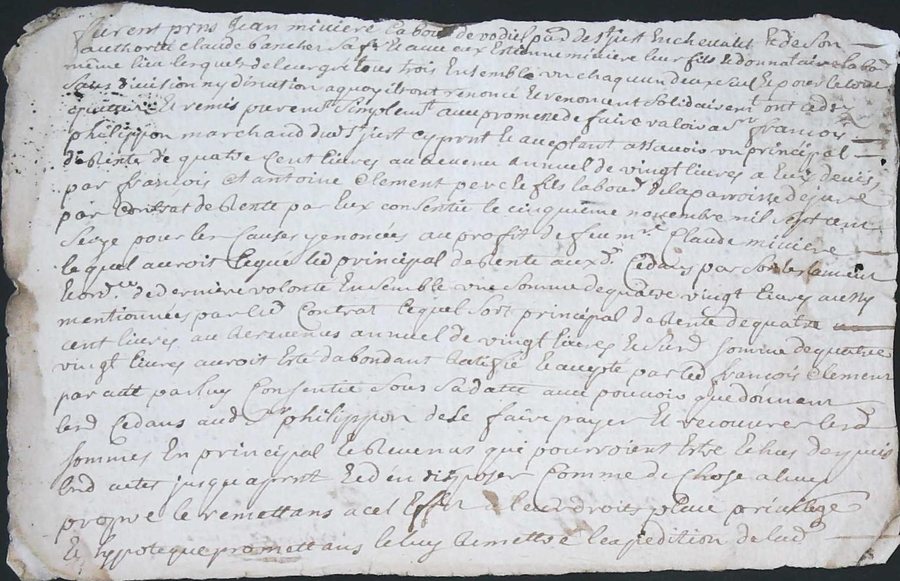 furent pnts Jean miniere labour de vodiel parr de st just En chevalet & de son
authorité Claude bancher sa fe & avec eux Estienne miniere leur fils & donnataire labor
même lieu lesquels de leur gré tous trois Ensemble un chaqun deux seul & pour le tout
sans division ny dination a quoy ils ont renoncé & renoncent solidairent ont cedé
& remis purent simplent avec promesse de faire valoir a sr francois
philippon marchand dud st just cy prnt & acceptant assavoir un principal
de Rente de quatre cent livres au Revenu annuel de vingt livres a Eux deues
par francois & antoine Clement pere & fils labour de la parroisse de juré
par contrat de Rente par Eux consentie le cinquième novembre mil sept cent
seize pour les Causes y enoncées au profit de feu mre Claude miniere
lequel auroit legué led principal de Rente auxd Cedans par son testament
& ordce de derniere volonté Ensemble une somme de quatre vingt livres aussy
mentionnées par led Contrat lequel sort principal de Rente de quatre
cent livres au Revenus annuel de vingt livres & lad somme de quatre
vingt livres auroit Eté dabondant Ratifié & accepté par led francois Clement
par acte par luy Consentie sous sa datte avec pouvoir que donnent
lesd Cedans aud sr philippon de se faire payer & recouvrer lesd
sommes En principal & Revenus qui pourroient Etre Echus depuis
lesd actes jusqua prnt & den disposer Comme de Chose a luy
propre le remettans a cet Effet a leur droits place privilege
& hypoteque promettans & luy Remettre & lexpedition dud